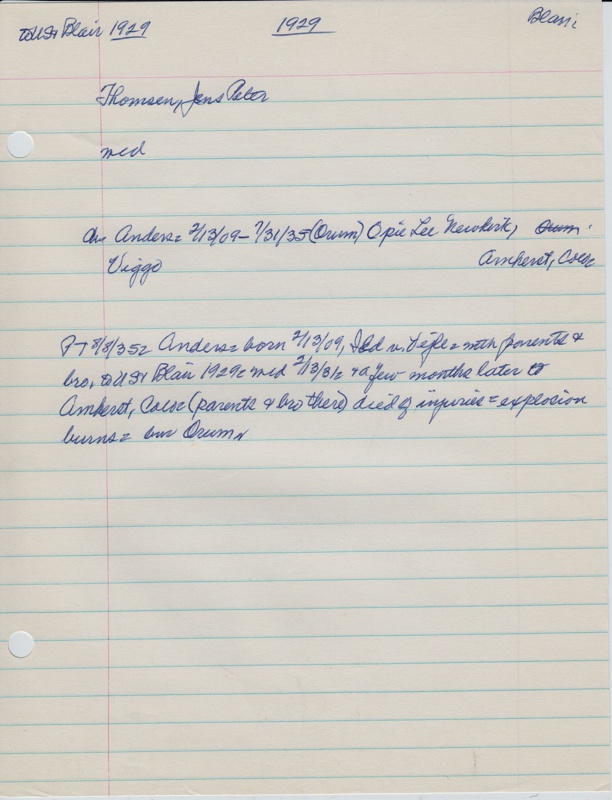 to US Blair 1929 1929 Blair:
Thomsen, Jens Peter
med
Ch= Anders= 2/13/09- 7/31/35 (Orum) Opie Lee Newkirk, Orum
Viggo Amherst, Colo=
P-T 8/8/35= Anders= born 2/13/09, v. Vejle= with parents &
bro, to US Blair 1929= med 2/13/31= & a few months later to
Amherst, Colo= (parents & brothers) died of injuries= explosion
burns= bur Orum